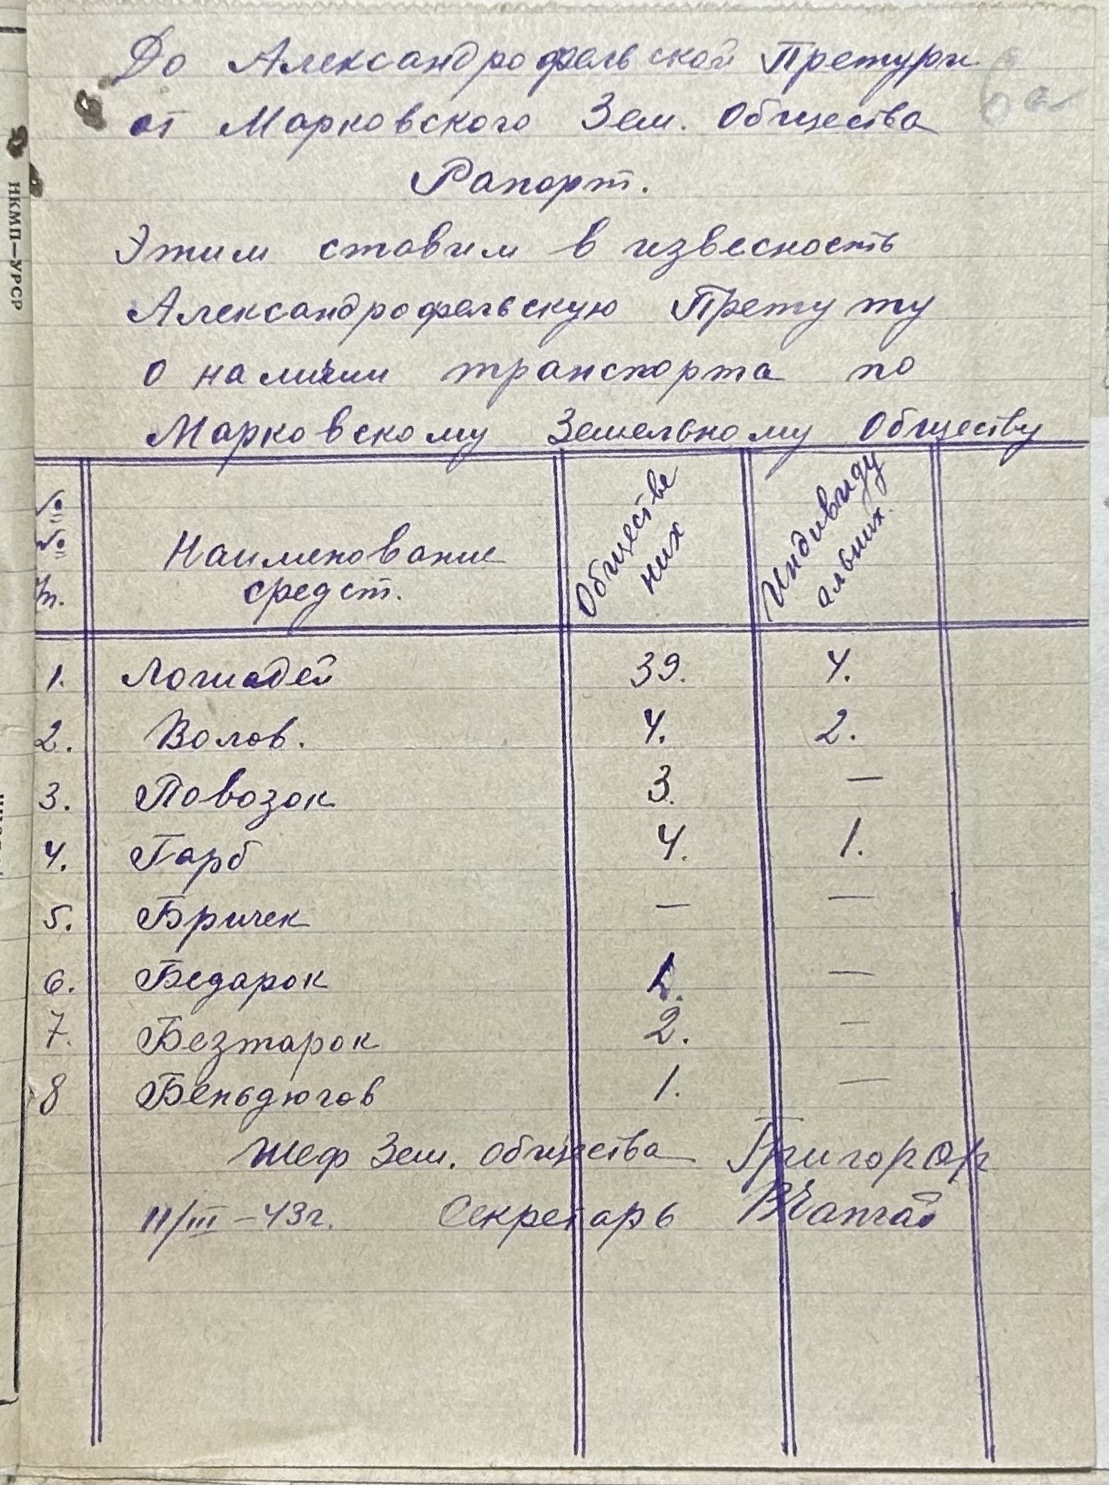 До Александрофельской Претури
6а
от Марковского Зем. Общества
Рапорт.
НКМП—УРСР
Этим ставим в извесность
Александрофельскую Претуту
о наличии транспорта по
Марковскому Земельному Обществу
№№ п. Наименование средст. Обществе них Индивиду альних.
1. Лошадей 39. 4.
2. Волов. 4. 2.
3. Повозок 3. —
4. Гарб 4. 1.
5. Бричек — —
6. Бедарок 1. —
7. Безтарок 2. —
8 Беньдюгов 1. —
Шеф Зем. общества Григор
11/III–43г. Секретарь